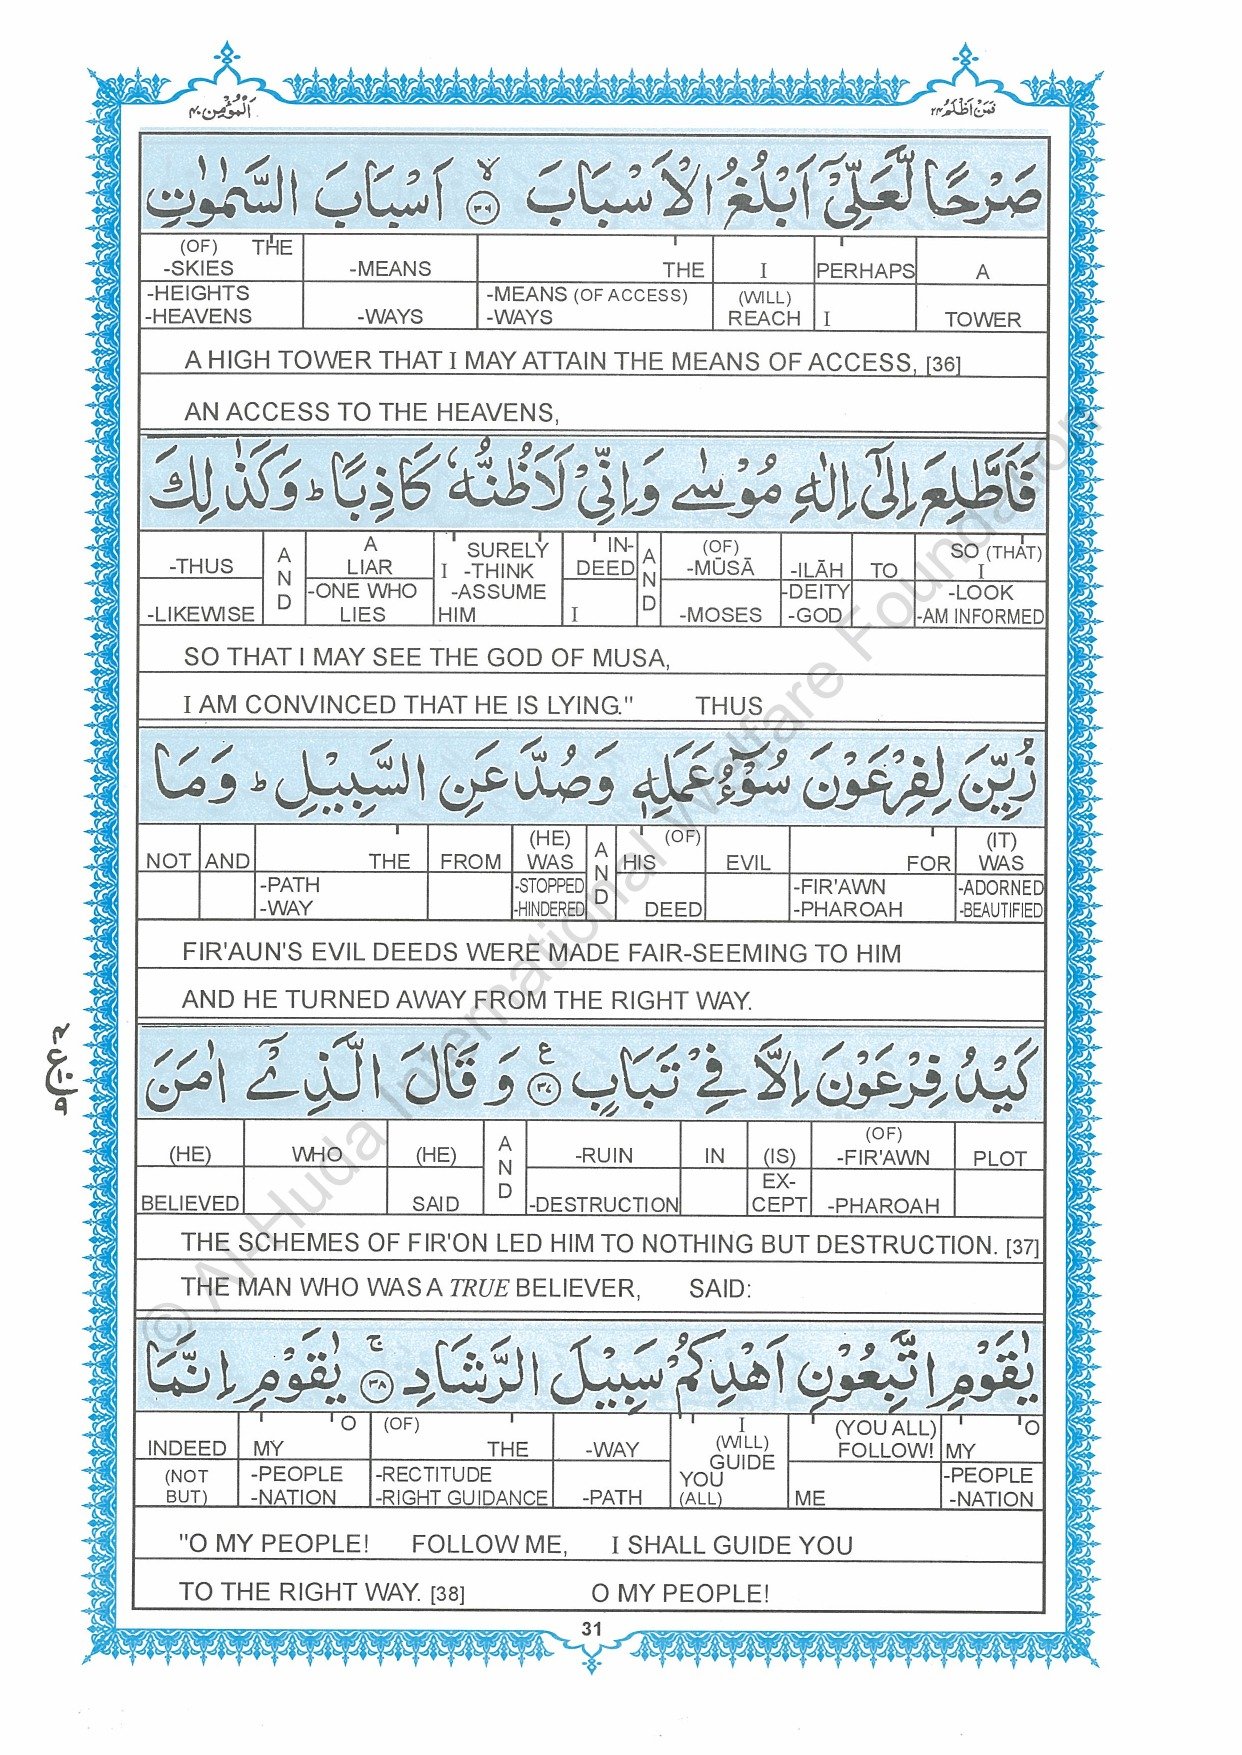 اَلْمُؤْمِن٤٠
فَمَنْ اَظْلَمُ٢٤
صَرْحًا لَّعَلِّیْۤ اَبْلُغُ الْاَسْبَابَ ۙ﴿۳۶﴾ اَسْبَابَ السَّمٰوٰتِ
(OF) THE -MEANS THE I PERHAPS A
-SKIES
-HEIGHTS -MEANS (OF ACCESS) (WILL)
-HEAVENS -WAYS -WAYS REACH I TOWER
A HIGH TOWER THAT I MAY ATTAIN THE MEANS OF ACCESS, [36]
AN ACCESS TO THE HEAVENS,
فَاَطَّلِعَ اِلٰۤی اِلٰهِ مُوْسٰی وَ اِنِّیْ لَاَظُنُّهٗ كَاذِبًا ؕ وَ كَذٰلِكَ
-THUS AND A LIAR SURELY I -THINK IN-DEED AND (OF) -MŪSĀ -ILĀH TO SO (THAT) I
-LIKEWISE -ONE WHO LIES -ASSUME HIM I -MOSES -DEITY -GOD -LOOK -AM INFORMED
SO THAT I MAY SEE THE GOD OF MUSA,
I AM CONVINCED THAT HE IS LYING." THUS
زُیِّنَ لِفِرْعَوْنَ سُوْٓءُ عَمَلِهٖ وَ صُدَّ عَنِ السَّبِیْلِ ؕ وَ مَا
NOT AND THE FROM (HE) WAS AND (OF) HIS EVIL FOR (IT) WAS
-PATH -WAY -STOPPED -HINDERED DEED -FIR'AWN -PHAROAH -ADORNED -BEAUTIFIED
FIR'AUN'S EVIL DEEDS WERE MADE FAIR-SEEMING TO HIM
AND HE TURNED AWAY FROM THE RIGHT WAY.
كَیْدُ فِرْعَوْنَ اِلَّا فِیْ تَبَابٍ ﴿۳۷﴾ ع وَ قَالَ الَّذِیْۤ اٰمَنَ
(HE) WHO (HE) AND -RUIN IN (IS) (OF) -FIR'AWN PLOT
BELIEVED SAID -DESTRUCTION EX-CEPT -PHAROAH
THE SCHEMES OF FIR'ON LED HIM TO NOTHING BUT DESTRUCTION. [37]
THE MAN WHO WAS A TRUE BELIEVER, SAID:
یٰقَوْمِ اتَّبِعُوْنِ اَهْدِكُمْ سَبِیْلَ الرَّشَادِ ۚ﴿۳۸﴾ یٰقَوْمِ اِنَّمَا
INDEED O MY (OF) THE -WAY I (WILL) GUIDE (YOU ALL) FOLLOW! O MY
(NOT BUT) -PEOPLE -NATION -RECTITUDE -RIGHT GUIDANCE -PATH YOU (ALL) ME -PEOPLE -NATION
"O MY PEOPLE! FOLLOW ME, I SHALL GUIDE YOU
TO THE RIGHT WAY. [38] O MY PEOPLE!
31
© Al-Huda International Welfare Foundation